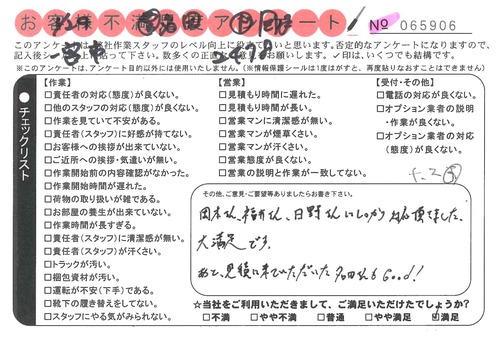 お客様不満度アンケート № 065906
このアンケートは、弊社作業スタッフのレベル向上に役立てたいと思います。否定的なアンケートになりますので、
記入後シールを貼って下さい。数多くの正直な意見をお願いします。✓印は、いくつでも結構です。
※このアンケートは、アンケート目的以外には使用いたしません。(※情報保護シールは1度はがすと、再度貼りなおすことはできません)
●チェックリスト
【作業】
□責任者の対応(態度)が良くない。
□他のスタッフの対応(態度)が良くない。
□作業を見ていて不安がある。
□責任者(スタッフ)に好感が持てない。
□お客様への挨拶が出来ていない。
□ご近所への挨拶・気遣いが無い。
□作業開始前の内容確認がなかった。
□作業開始時間が遅れた。
□荷物の取り扱いが雑である。
□お部屋の養生が出来ていない。
□作業時間が長すぎる。
□責任者(スタッフ)に清潔感が無い。
□責任者(スタッフ)が汗くさい。
□トラックが汚い。
□梱包資材が汚い。
□運転が不安(下手)である。
□靴下の履き替えをしてない。
□スタッフにやる気がみられない。
【営業】
□見積もり時間に遅れた。
□見積もり時間が長い。
□営業マンに清潔感が無い。
□営業マンが煙草くさい。
□営業マンが汗くさい。
□営業態度が良くない。
□営業の説明と作業が一致してない。
【受付・その他】
□電話の対応が良くない。
□オプション業者の説明
・作業が良くない。
□オプション業者の対応
(態度)が良くない。
その他、ご意見・ご要望等ありましたらお書き下さい。
田木さん、福井さん、日野さん、いしっかり対応頂てました。
大満足です。
あと、見積に来ていただいた さんもGood!
☆当社をご利用いただきまして、ご満足いただけたでしょうか?
□不満 □やや不満 □普通 □やや満足 ☑満足